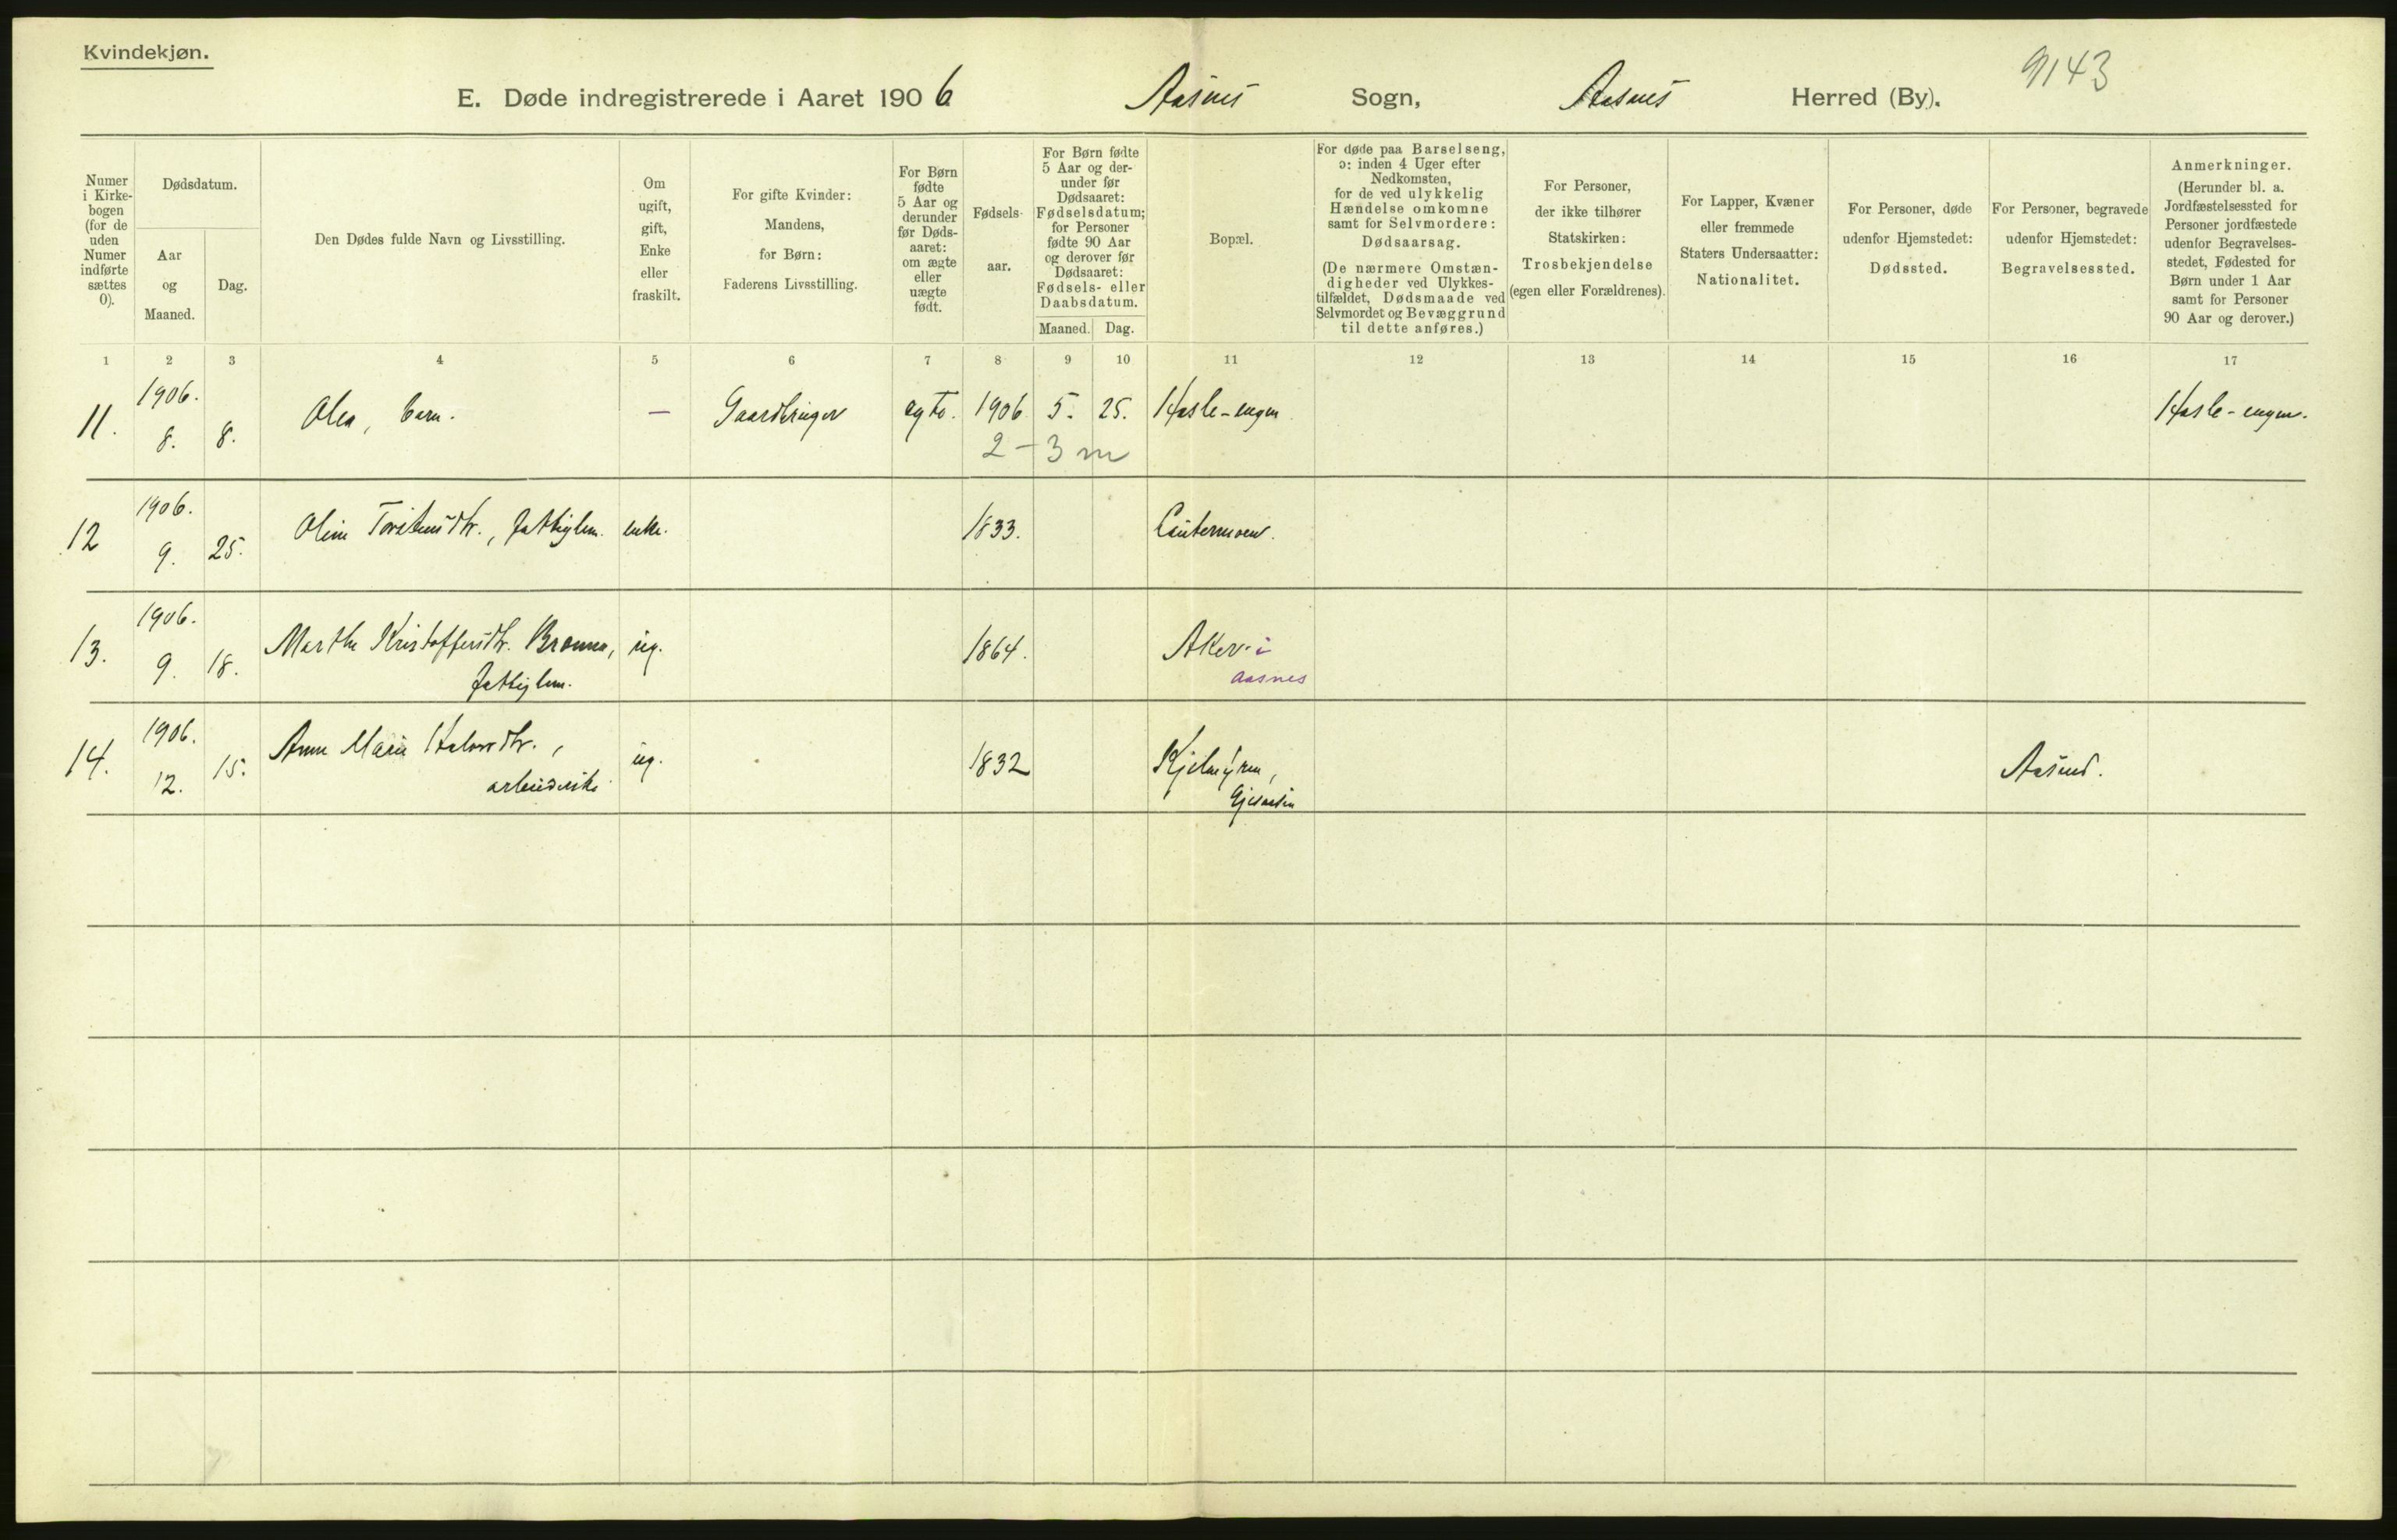 Kvindekjøn.
9143
E. Døde indregistrerede i Aaret 1906 Aasnes Sogn, Aasnes Herred (By).
Numer
i Kirke-
bogen
(for de
uden
Numer
indførte
sættes
0).
Dødsdatum.
Aar
og
Maaned.
Dag.
Den Dødes fulde Navn og Livsstilling.
Om
ugift,
gift,
Enke
eller
fraskilt.
For gifte Kvinder:
Mandens,
for Børn:
Faderens Livsstilling.
For Børn
fødte
5 Aar og
derunder
før Døds-
aaret:
om ægte
eller
uægte
født.
Fødsels-
aar.
For Børn fødte
5 Aar og der-
under før
Dødsaaret:
Fødselsdatum;
for Personer
fødte 90 Aar
og derover før
Dødsaaret:
Fødsels- eller
Daabsdatum.
Maaned. Dag.
Bopæl.
For døde paa Barselseng,
ɔ: inden 4 Uger efter
Nedkomsten,
for de ved ulykkelig
Hændelse omkomne
samt for Selvmordere:
Dødsaarsag.
(De nærmere Omstæn-
digheder ved Ulykkes-
tilfældet, Dødsmaade ved
Selvmordet og Bevæggrund
til dette anføres.)
For Personer,
der ikke tilhører
Statskirken:
Trosbekjendelse
(egen eller Forældrenes).
For Lapper, Kvæner
eller fremmede
Staters Undersaatter:
Nationalitet.
For Personer, døde
udenfor Hjemstedet:
Dødssted.
For Personer, begravede
udenfor Hjemstedet:
Begravelsessted.
Anmerkninger.
(Herunder bl. a.
Jordfæstelsessted for
Personer jordfæstede
udenfor Begravelses-
stedet, Fødested for
Børn under 1 Aar
samt for Personer
90 Aar og derover.)
1 2 3 4 5 6 7 8 9 10 11 12 13 14 15 16 17
11. 1906. 8. 8. Olea, barn. — Gaardbruger ægte. 1906 5. 25. Hasle-engen Hasle-engen.
2-3 m
12 1906. 9. 25. Oline Torstensdtr., fattiglem. enke. 1833.
13. 1906. 9. 18. Marthe Kristoffersdtr. ug. 1864. Aker i
fattiglem. Aasnes
14. 1906. 12. 15. Anne Marie Halvorsdtr., ug. 1832 Aasnes.
arbeiderske